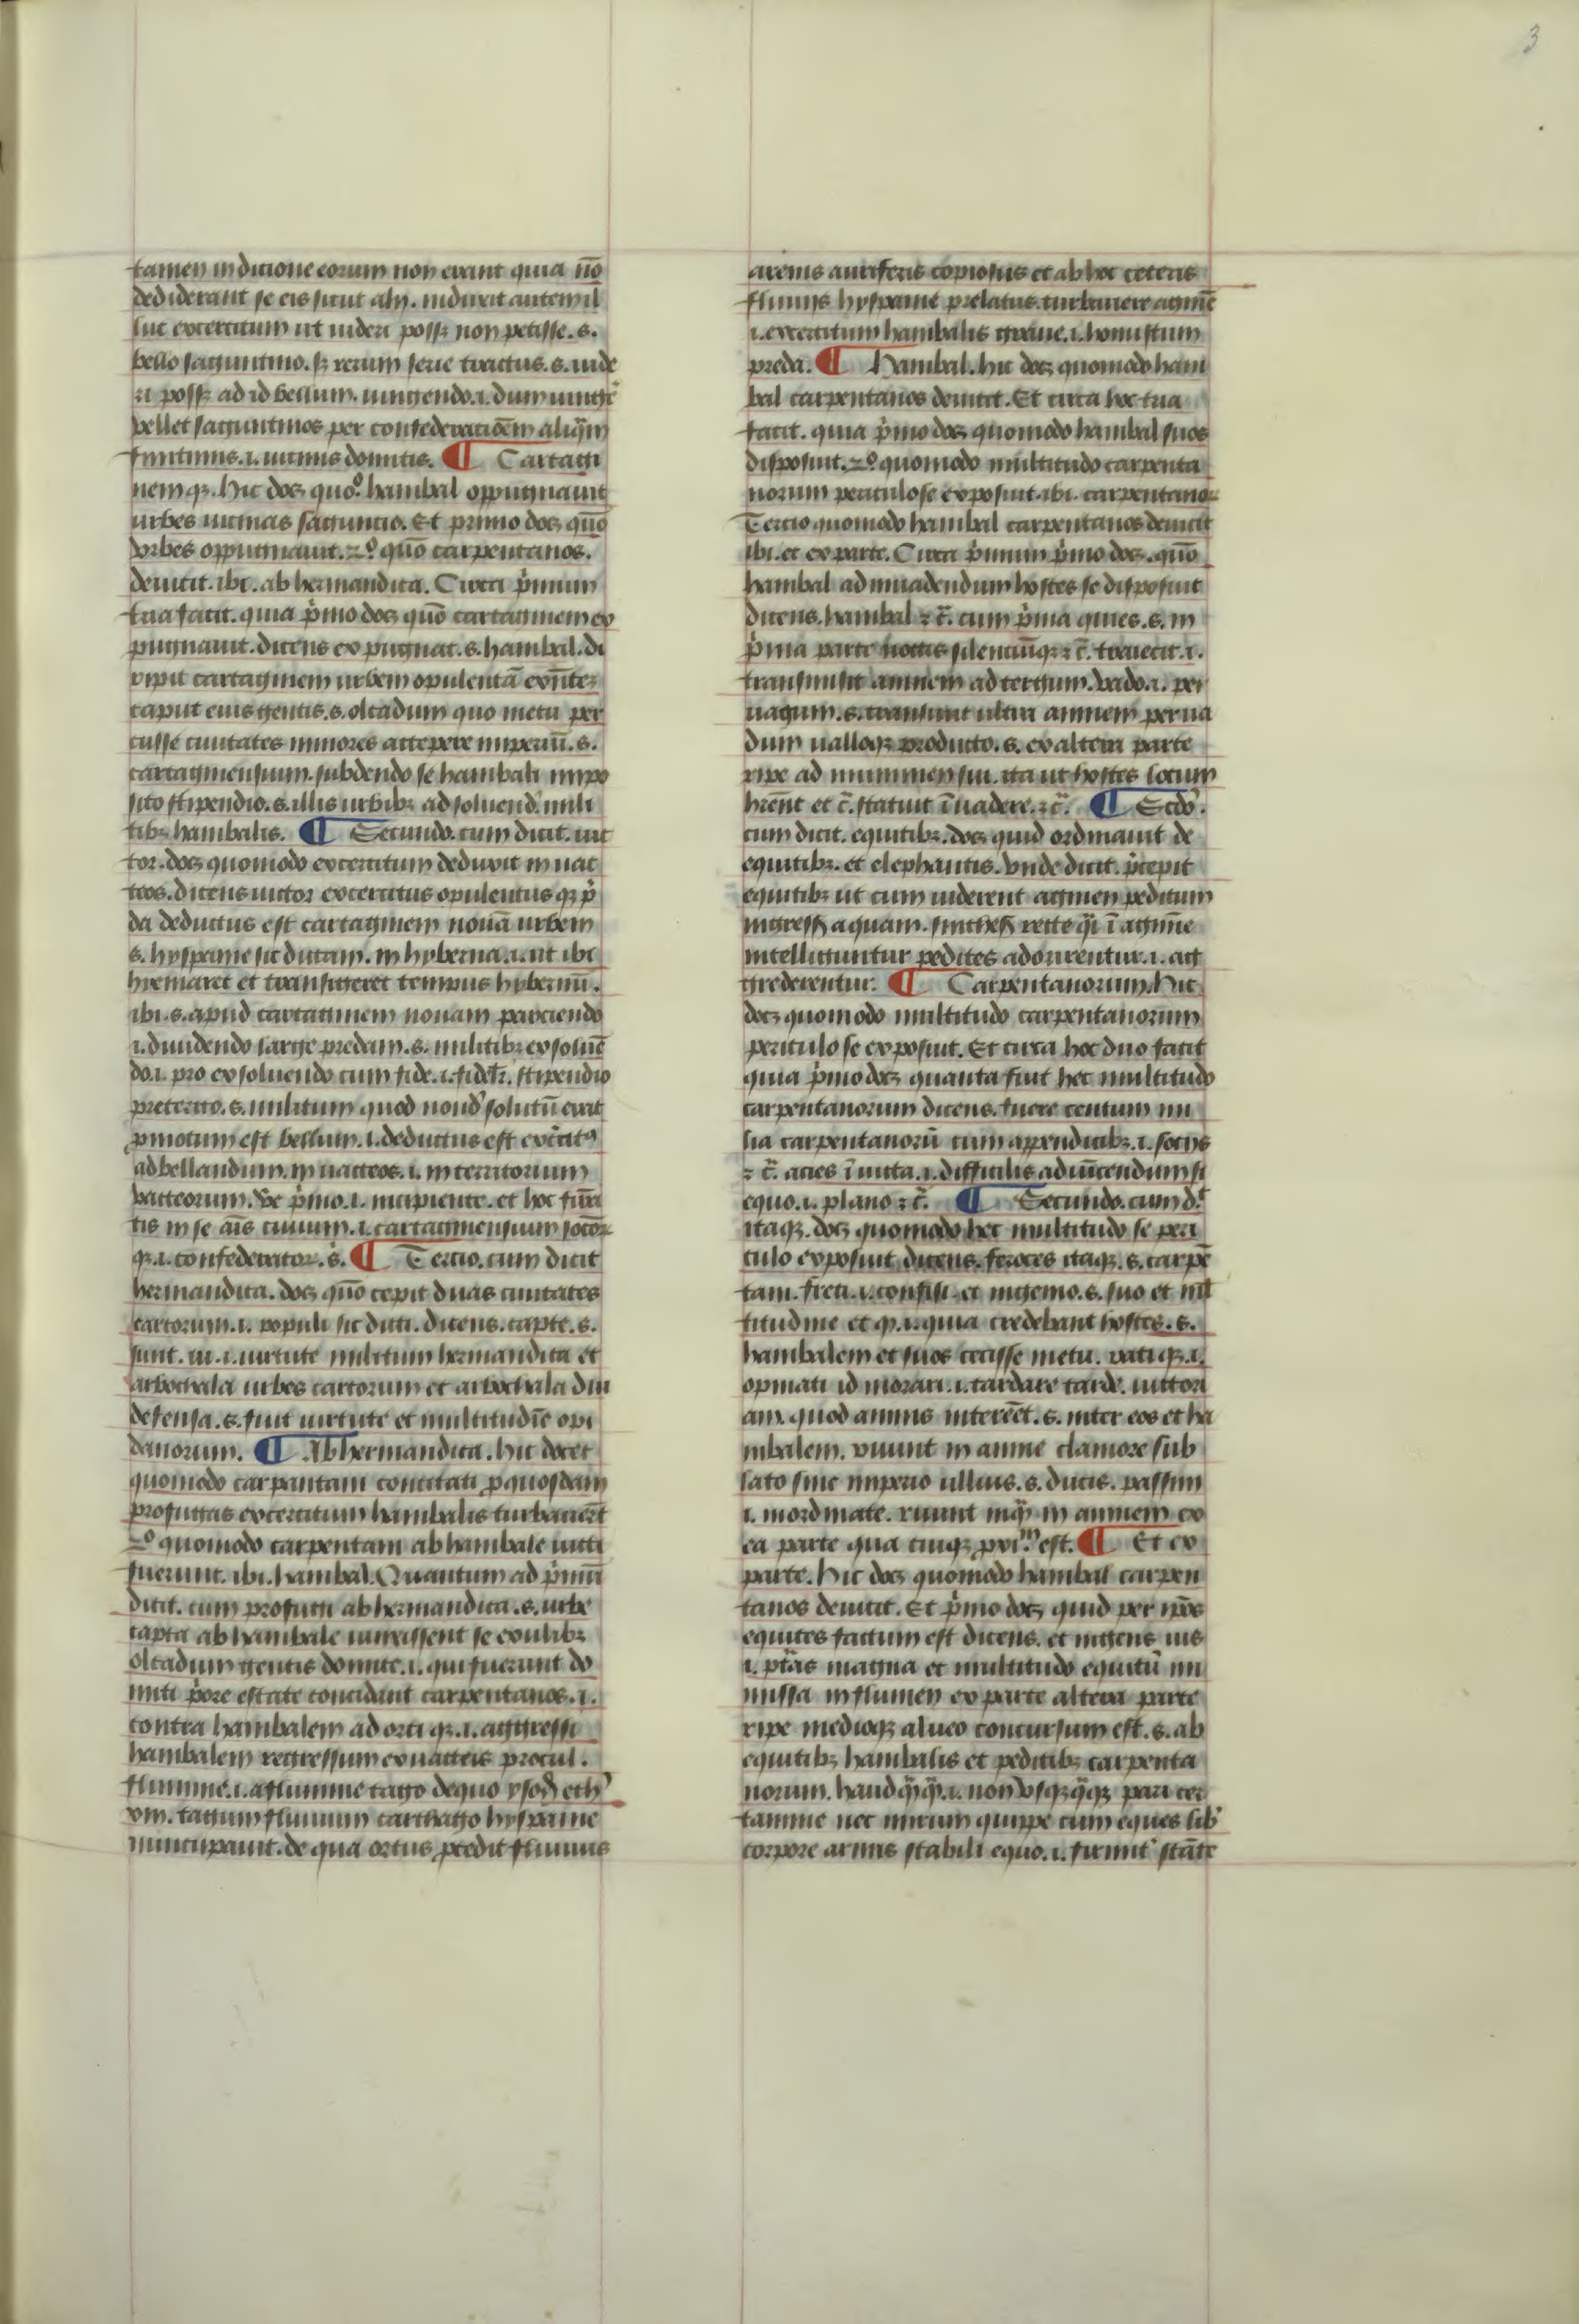 3
tamen in dicione eorum non erant quia nō
dediderant se eis sicut alij. induxit autem il
luc exercitum ut uideri possꝫ non petisse .s.
bello saguntino. sꝫ rerum serie tractus .s. uide
ri possꝫ ad id bellum. iungendo .i. dum iungeʳ
vellet saguntinos per confederacōem aliqͣm
finitimis .i. uicinis domitis. ¶ Cartagi
nem qꝫ. hic docꝫ quoº. hanibal oppugnauit
urbes uicinas sagunto. Et primo docꝫ quō
vrbes oppugnauit. 2º. quō carpentanos.
deuicit. ibi. ab hermandica. Circa pͥmum
tria facit. quia pͥmo docꝫ quō cartaginem ex
pugnauit. dicens expugnat .s. hanibal. di
ripit cartaginem urbem opulentā exn̄tem
caput eius gentis .s. olcadum quo metu per
cusse ciuitates minores accepere imperiū .s.
cartaginensium. subdendo se hanibali impo
sito stipendio .s. illis urbibꝫ ad soluend' mili
tibꝫ hanibalis. ¶ Secundo. cum dicit. uic
tor. docꝫ quomodo exercitum deduxit in uac
ceos. dicens uictor exercitus opulentus qꝫ p̄
da deductus est cartaginem nouā urbem
.s. hyspanie sic dictam. in hyberna .i. ut ibi
hiemaret et transigeret tempus hybernū.
ibi .s. apud cartaginem nouam parciendo
.i. diuidendo large predam .s. militibꝫ exsoluē
do .i. pro exsoluendo cum fide .i. fidelr̄. stipendio
preterito .s. militum quod nond' solutū erat
ꝓmotum est bellum .i. deductus est exercit⁹
ad bellandum. in uacceos .i. in territorium
vacceorum. Ve pͥmo .i. incipiente. et hoc firma
tis in se aīs ciuium .i. cartaginensium socioꝝ
qꝫ .i. confederatorꝝ. s. ¶ Tercio. cum dicit
hermandica. docꝫ quō cepit duas ciuitates
cartorum .i. populi sic dicti. dicens. capte .s.
sunt. ui .i. uirtute militum hermandica et
arbochala urbes cartorum et arbochala diu
defensa .s. fuit uirtute et multitudīe opi
danorum. ¶ Ab hermandica. hic docet
quomodo carpantani concitati ꝑ quosdam
profugas exercitum hanibalis turbauerūt
2º quomodo carpentani ab hanibale uicti
fuerunt. ibi. hanibal. Quantum ad pͥmū
dicit. cum profugi ab hermandica .s. urbe
capta ab hanibale iunxissent se exulibꝫ
olcadum gentis domite .i. qui fuerunt do
miti pͥore estate concidunt carpentanos .i.
contra hanibalem ad orti qꝫ .i. aggressi
hanibalem regressum ex uacceis procul.
flumine .i. a flumine tago de quo ysod' eth'
xm. tagum fluuium carthago hyspanie
nuncupauit. de qua ortus ꝓcedit fluuius
arenis auriferis copiosus et ab hoc ceteris
fluuijs hyspanie prelatus. turbauere agmē
.i. exercitum hanibalis graue .i. honustum
preda. ¶ Hanibal. hic docꝫ quomodo hani
bal carpentanos deuicit. Et circa hoc tria
facit. quia pͥmo docꝫ quomodo hanibal suos
disposuit. 2º. quomodo multitudo carpenta
norum periculose exposuit. ibi. carpentanoꝝ
Tercio quomodo hanibal carpentanos deuicit
ibi. et ex parte. Circa pͥmum pͥmo docꝫ. quō
hanibal ad inuadendum hostes se disposuit
dicens. hanibal ⁊ c̄. cum pͥma quies .s. in
pͥma parte noctis silenciūqꝫ ⁊ c̄. traiecit .i.
transmisit amnem ad tergum. vado .i. per
uagum .s. transiuit ultra amnem per ua
dum ualloqꝫ producto .s. ex altera parte
ripe ad munimen sui. ita ut hostes locum
hrēnt et c̄. statuit īuadere. ⁊ c̄. ¶ Scdō.
cum dicit. equitibꝫ. docꝫ quid ordinauit de
equitibꝫ. et elephantis. vnde dicit. p̄cepit
equitibꝫ ut cum uiderent agmen peditum
ingress̄ aquam. sinthes̄ recte qͥ ī agmīe
intelliguntur pedites adorirentur .i. ag
grederentur. ¶ Carpentanorum. hic
docꝫ quomodo multitudo carpentanorum
periculose exposuit. Et circa hoc duo facit
quia pͥmo docꝫ quanta fuit hec multitudo
carpentanorum dicens. fuere centum mi
lia carpentanorū cum appendicibꝫ .i. socijs
⁊ c̄. acies īuicta .i. difficilis ad uīcendum si
equo .i. plano ⁊ c̄. ¶ Secundo. cum d.ᵗ
itaqꝫ. docꝫ quomodo hec multitudo se peri
culo exposuit dicens. feroces itaqꝫ .s. carpē
tani. freti .i. confisi. et ingenio .s. suo et ml̄
titudine et qͥ .i. quia credebant hostes .s.
hanibalem et suos cecisse metu. rati qꝫ .i.
opinati id morari .i. tardare tarde. uictori
am. quod amnis intereēt .s. inter eos et ha
nibalem. ruunt in amne clamore sub
lato sine imperio ullius .s. ducis. passim
.i. inordinate. ruunt inqͣ in amnem ex
ea parte qua cuiqꝫ ꝓxi.ᵐ est. ¶ Et ex
parte. hic docꝫ quomodo hanibal carpen
tanos deuicit. Et pͥmo docꝫ quid per ip̄os
equites factum est dicens. et ingens uis
.i. ptās magna et multitudo equitū im
missa in flumen ex parte altera parte
ripe medioqꝫ alueo concursum est .s. ab
equitibꝫ hanibalis et peditibꝫ carpenta
norum. haud qͣqͣ .i. non vsqꝫqͣqꝫ pari cer
tamine nec mirum quippe cum eques lib'
corpore armis stabili equo .i. firmit' stāte